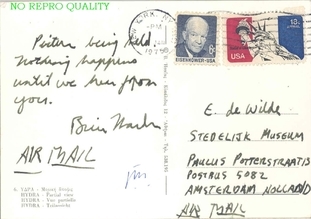 NO REPRO QUALITY
Picture being held
nothing happens
until we hear from
you.
AIR MAIL
6. ΥΔΡΑ
HYDRA - Partial view
HYDRA - Vue partielle
HYDRA -
EISENHOWER·USA
USA
E. de Wilde
STEDELIJK MUSEUM
PAULUS POTTERSTRAAT 13
POSTBUS 5082
AMSTERDAM HOLLAND
AIR MAIL